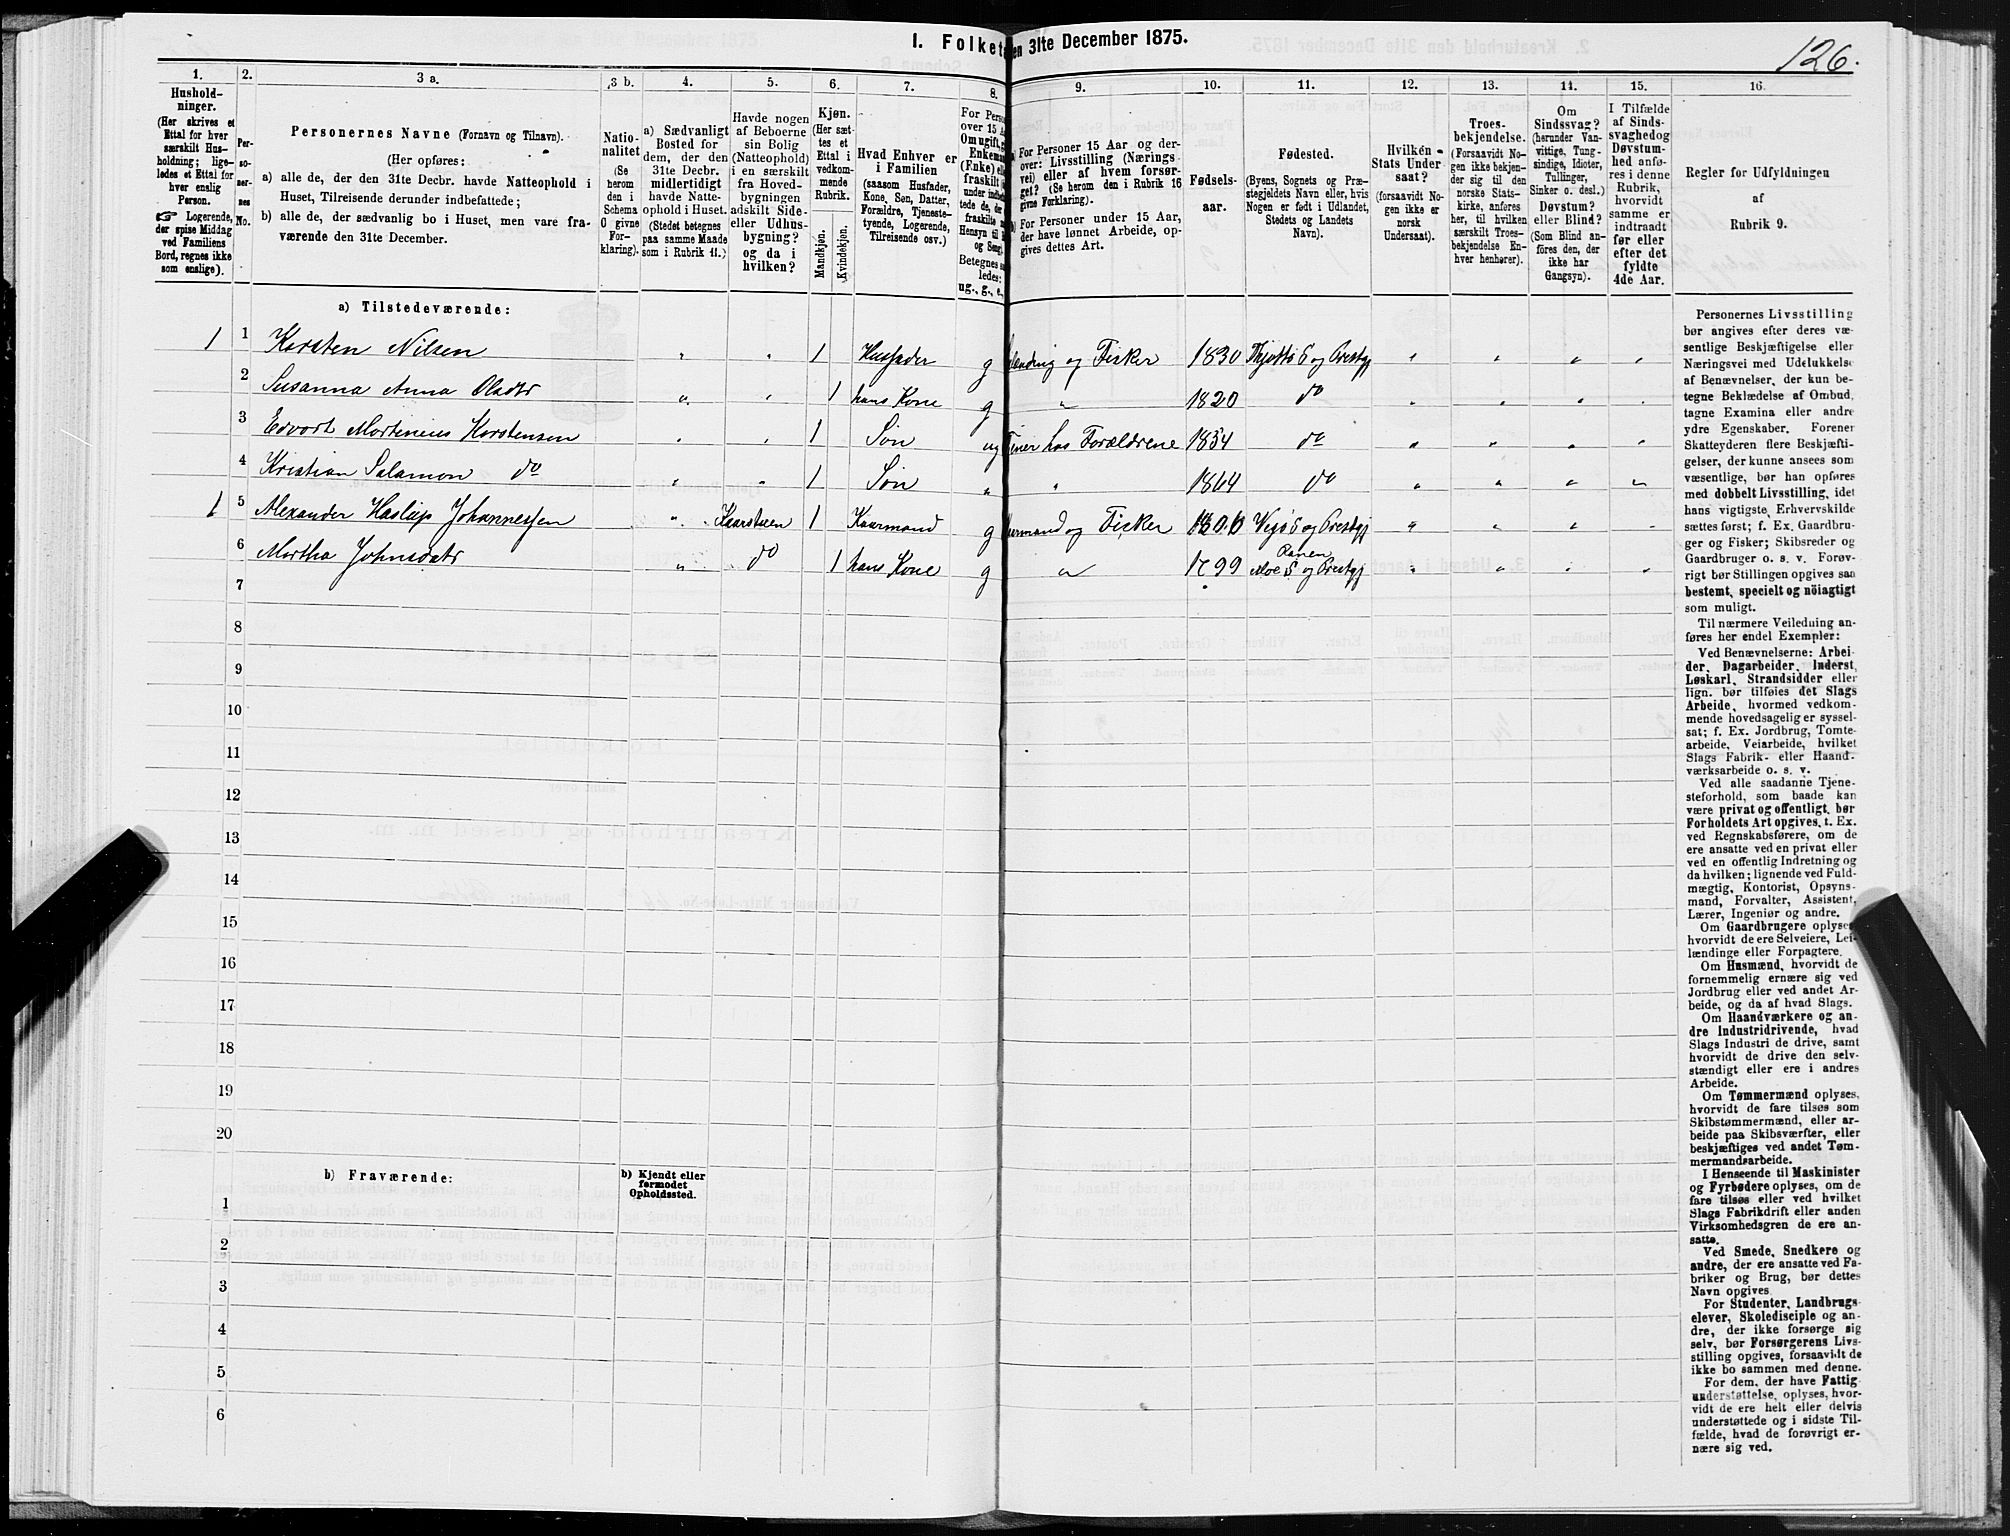 126.
I. Folket
en 31te December 1875.
1.
2.
3 a.
3 b.
4.
5.
6.
7.
8.
9.
10.
11.
12.
13.
14.
15.
16.
Hushold-
ninger.
(Her skrives et
Ettal for hver
særskilt Hus-
holdning; lige-
ledes et Ettal for
hver enslig
Person.
☞ Logerende,
der spise Middag
ved Familiens
Bord, regnes ikke
som enslige).
Per-
so-
ner-
nes
No.
Personernes Navne (Fornavn og Tilnavn).
(Her opføres:
a) alle de, der den 31te Decbr. havde Natteophold i
Huset, Tilreisende derunder indbefattede;
b) alle de, der sædvanlig bo i Huset, men vare fra-
værende den 31te December.
Natio-
nalitet
(Se
herom
den i
Schema
O givne
For-
klaring).
a) Sædvanligt
Bosted for
dem, der den
31te Decbr.
midlertidigt
havde Natte-
ophold i Huset.
(Stedet betegnes
paa samme Maade
som i Rubrik 11.)
Havde nogen
af Beboerne
sin Bolig
(Natteophold)
i en særskilt
fra Hoved-
bygningen
adskilt Side-
eller Udhus-
bygning?
og da i
hvilken?
Kjøn.
(Her sæt-
tes et
Ettal i
vedkom-
mende
Rubrik.
Mandkjøn.
Kvindekjøn.
Hvad Enhver er
i Familien
(saasom Husfader,
Kone, Søn, Datter,
Forældre, Tjeneste-
tyende, Logerende,
Tilreisende osv.)
For Perso
over 15 Aa
Om ugift, g
Enkema
(Enke) elle
fraskilt
under indbe
tede de, der
fraskilte m
Hensyn til
og Seng.
Betegnes s
ledes:
ug., g., e.,
a) For Personer 15 Aar og der-
over: Livsstilling (Nærings-
vei) eller af hvem forsør-
get? (Se herom den i Rubrik 16
givne Forklaring).
b) For Personer under 15 Aar,
der have lønnet Arbeide, op-
gives dettes Art.
Fødsels-
aar.
Fødested.
(Byens, Sognets og Præ-
stegjeldets Navn eller, hvis
Nogen er født i Udlandet,
Stedets og Landets
Navn).
Hvilken
Stats Under-
saat?
(forsaavidt No-
gen ikke er
norsk
Undersaat).
Troes-
bekjendelse.
(Forsaavidt No-
gen ikke bekjen-
der sig til den
norske Stats-
kirke, anføres
her, til hvilken
særskilt Troes-
bekjendelse En-
hver henhører).
Om
Sindssvag?
(herunder Van-
vittige, Tung-
sindige, Idioter,
Tullinger,
Sinker o. desl.)
Døvstum?
eller Blind?
(Som Blind an-
føres den, der
ikke har
Gangsyn).
I Tilfælde
af Sinds-
svaghedog
Døvstum-
hed anfø-
res i denne
Rubrik,
hvorvidt
samme er
indtraadt
før eller
efter det
fyldte
4de Aar.
Regler for Udfyldningen
af
Rubrik 9.
a) Tilstedeværende:
1 1 Karsten Nilsen " " 1 Husfader g og Fisker 1830 Thjøttø S og Prestgj " " " "
2 Susanna Anna Olsdtr " " 1 hans Kone g " 1820 do " " " "
3 Edvort Mortinius Karstensen " " 1 Søn ug hos Forældrene 1854 do " " " "
4 Kristian Salamon do " " 1 Søn " " 1864 do " " " "
1 5 Alexander Haslup Johannessen " Kaarstuen 1 Kaarmand g og Fisker 1800 Vegø S og Prestgj " " " "
6 Martha Johnsdatr " do 1 hans Kone g " 1799 Ranen Moe S og Prestgj " " " "
7
8
9
10
11
12
13
14
15
16
17
18
19
20
b) Fraværende:
b) Kjendt eller
formodet
Opholdssted.
1
2
3
4
5
6
Personernes Livsstilling
bør angives efter deres væ-
sentlige Beskjæftigelse eller
Næringsvei med Udelukkelse
af Benævnelser, der kun be-
tegne Beklædelse af Ombud,
tagne Examina eller andre
ydre Egenskaber. Forener
Skatteyderen flere Beskjæfti-
gelser, der kunne ansees som
væsentlige, bør han opføres
med dobbelt Livsstilling, idet
hans vigtigste Erhvervskilde
sættes først; f. Ex. Gaardbru-
ger og Fisker; Skibsreder og
Gaardbruger o. s. v. Forøv-
rigt bør Stillingen opgives saa
bestemt, specielt og nöiagtigt
som muligt.
Til nærmere Veiledning an-
føres her endel Exempler:
Ved Benævnelserne: Arbei-
der, Dagarbeider, Inderst,
Løskarl, Strandsidder eller
lign. bør tilføies det Slags
Arbeide, hvormed vedkom-
mende hovedsagelig er syssel-
sat; f. Ex. Jordbrug, Tomte-
arbeide, Veiarbeide, hvilket
Slags Fabrik- eller Haand-
værksarbeide o. s. v.
Ved alle saadanne Tjene-
steforhold, som baade kan
være privat og offentligt, bør
Forholdets Art opgives, t. Ex.
ved Regnskabsførere, om de
ere ansatte ved en privat eller
ved en offentlig Indretning og
da hvilken; lignende ved Fuld-
mægtig, Kontorist, Opsyns-
mand, Forvalter, Assistent,
Lærer, Ingeniør og andre.
Om Gaardbrugere oplyses,
hvorvidt de ere Selveiere, Lei-
lændinge eller Forpagtere.
Om Husmænd, hvorvidt de
fornemmelig ernære sig ved
Jordbrug eller ved andet Ar-
beide, og da af hvad Slags.
Om Haandværkere og an-
dre Industridrivende, hvad
Slags Industri de drive, samt
hvorvidt de drive den selv-
stændigt eller ere i andres
Arbeide.
Om Tømmermænd oplyses,
hvorvidt de fare tilsøs som
Skibstømmermænd, eller ar-
beide paa Skibsværfter, eller
beskjæftiges ved andet Tøm-
mermandsarbeide.
I Henseende til Maskinister
og Fyrbødere oplyses, om de
fare tilsøs eller ved hvilket
Slags Fabrikdrift eller anden
Virksomhedsgren de ere an-
satte.
Ved Smede, Snedkere og
andre, der ere ansatte ved Fa-
briker og Brug, bør dettes
Navn opgives.
For Studenter, Landbrugs-
elever, Skoledisciple og an-
dre, der ikke forsørge sig
selv, bør Forsørgerens Livs-
stilling opgives, forsaavidt de
ikke bo sammen med denne.
For dem, der have Fattig-
understøttelse, oplyses, hvor-
vidt de ere helt eller delvis
understøttede og i sidste Til-
fælde, hvad de forøvrigt er-
nære sig ved.